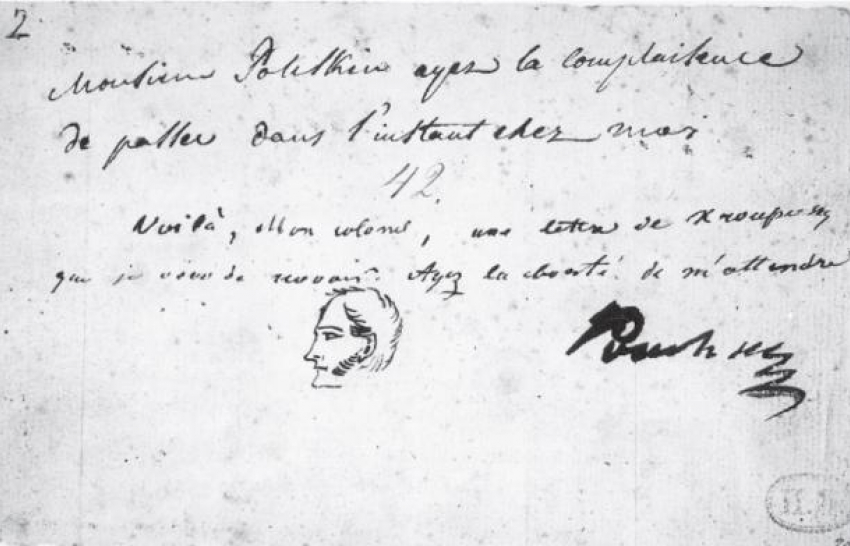 2
Monsieur Poletskin ayez la complaisance
de passer dans l'instant chez moi
42.
Voilà, Mon colonel, une lettre de Kroupensky
que je viens de recevoir. Ayez la bonté de m'attendre